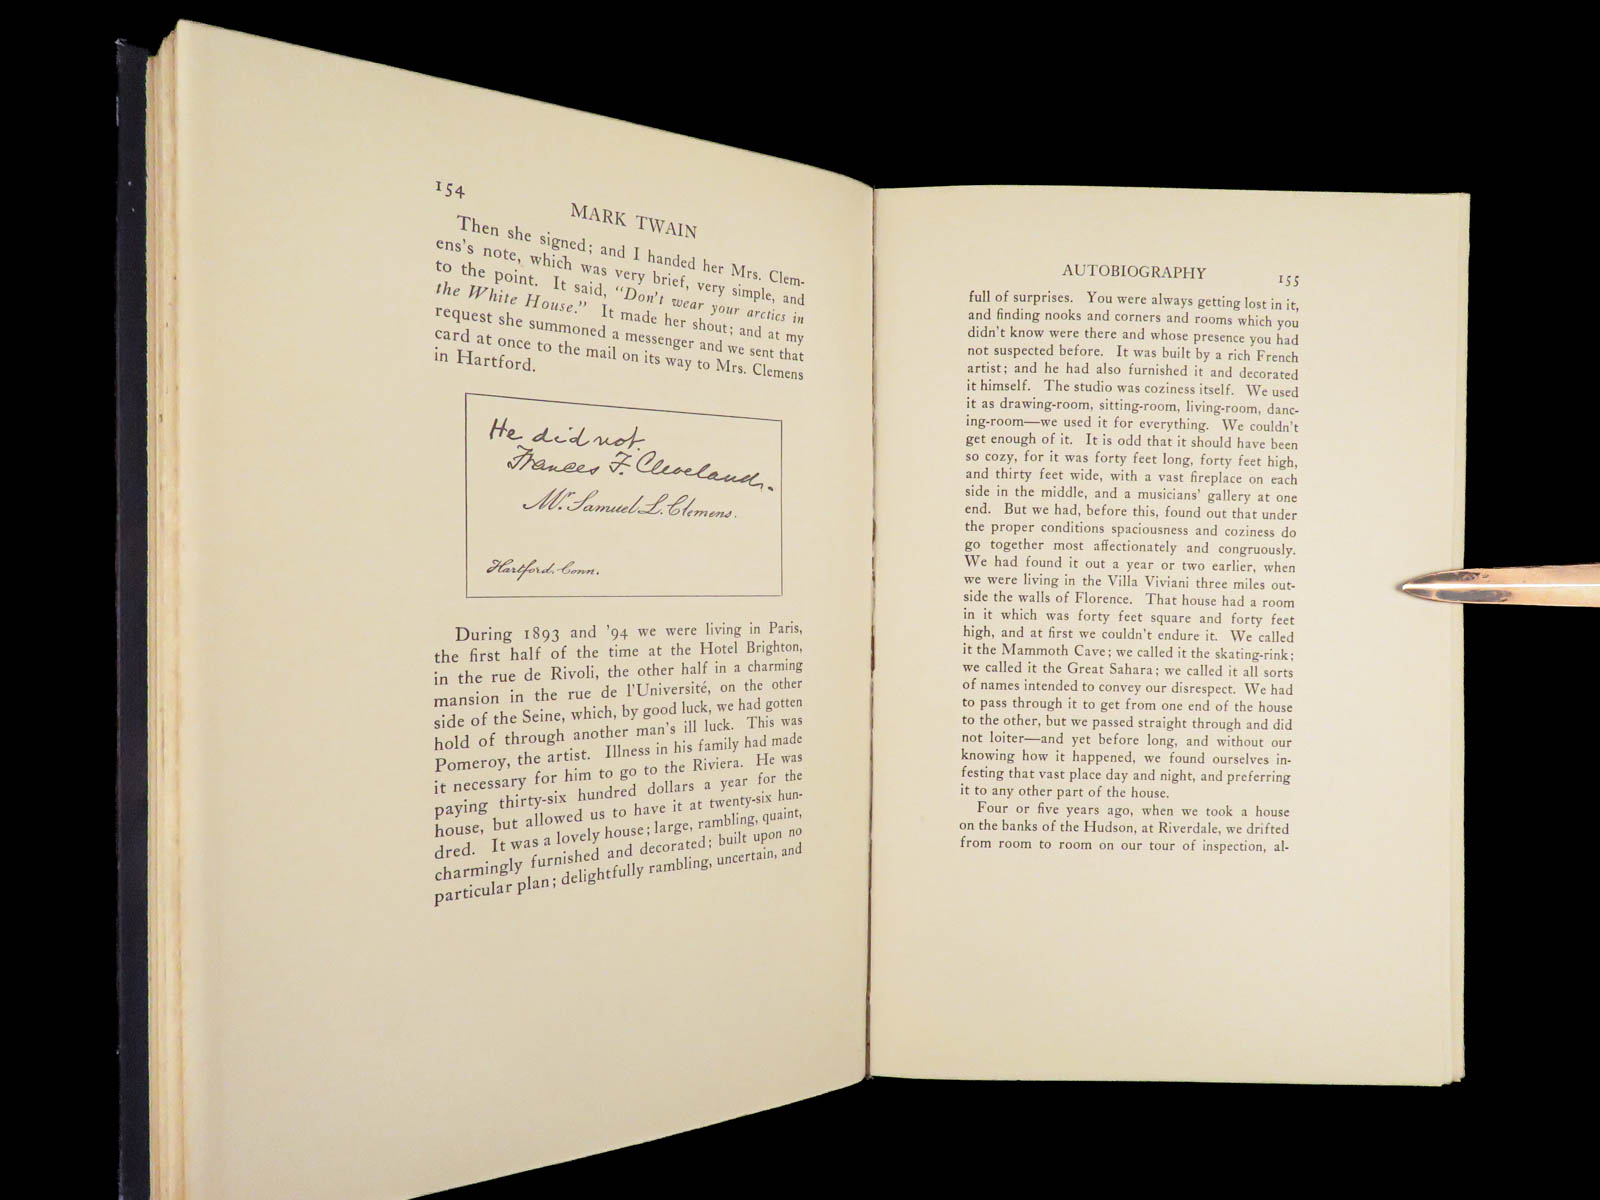 154
MARK TWAIN
Then she signed; and I handed her Mrs. Clem-
ens's note, which was very brief, very simple, and
to the point. It said, "Don't wear your arctics in
the White House." It made her shout; and at my
request she summoned a messenger and we sent that
card at once to the mail on its way to Mrs. Clemens
in Hartford.
He did not.
Frances F. Cleveland.
Mr. Samuel L. Clemens.
Hartford. Conn.
During 1893 and '94 we were living in Paris,
the first half of the time at the Hotel Brighton,
in the rue de Rivoli, the other half in a charming
mansion in the rue de l'Université, on the other
side of the Seine, which, by good luck, we had gotten
hold of through another man's ill luck. This was
Pomeroy, the artist. Illness in his family had made
it necessary for him to go to the Riviera. He was
paying thirty-six hundred dollars a year for the
house, but allowed us to have it at twenty-six hun-
dred. It was a lovely house; large, rambling, quaint,
charmingly furnished and decorated; built upon no
particular plan; delightfully rambling, uncertain, and
AUTOBIOGRAPHY
155
full of surprises. You were always getting lost in it,
and finding nooks and corners and rooms which you
didn't know were there and whose presence you had
not suspected before. It was built by a rich French
artist; and he had also furnished it and decorated
it himself. The studio was coziness itself. We used
it as drawing-room, sitting-room, living-room, danc-
ing-room—we used it for everything. We couldn't
get enough of it. It is odd that it should have been
so cozy, for it was forty feet long, forty feet high,
and thirty feet wide, with a vast fireplace on each
side in the middle, and a musicians' gallery at one
end. But we had, before this, found out that under
the proper conditions spaciousness and coziness do
go together most affectionately and congruously.
We had found it out a year or two earlier, when
we were living in the Villa Viviani three miles out-
side the walls of Florence. That house had a room
in it which was forty feet square and forty feet
high, and at first we couldn't endure it. We called
it the Mammoth Cave; we called it the skating-rink;
we called it the Great Sahara; we called it all sorts
of names intended to convey our disrespect. We had
to pass through it to get from one end of the house
to the other, but we passed straight through and did
not loiter—and yet before long, and without our
knowing how it happened, we found ourselves in-
festing that vast place day and night, and preferring
it to any other part of the house.
Four or five years ago, when we took a house
on the banks of the Hudson, at Riverdale, we drifted
from room to room on our tour of inspection, al-